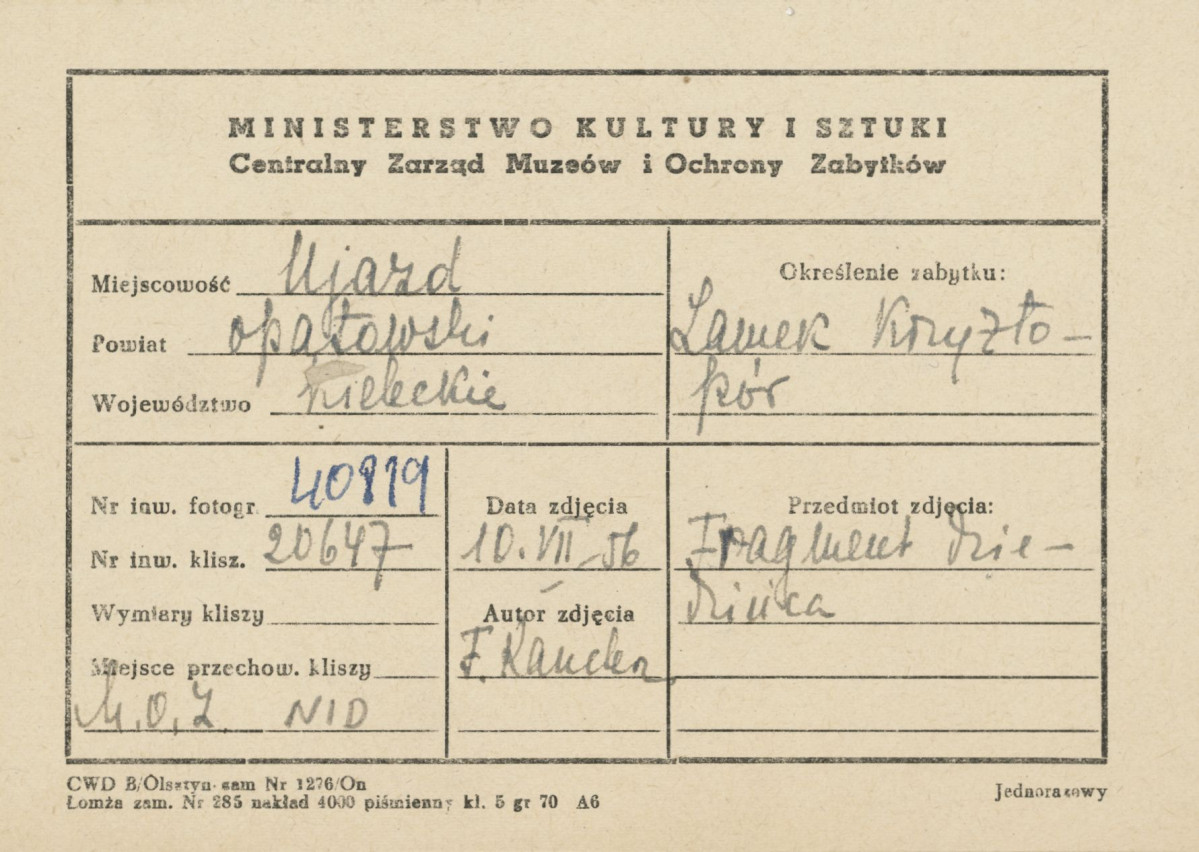 MINISTERSTWO KULTURY I SZTUKI
Centralny Zarząd Muzeów i Ochrony Zabytków
Miejscowość Ujazd
Powiat opatowski
Województwo kieleckie
Określenie zabytku:
Zamek Krzyżto-
pór
Nr inw. fotogr. 40819
Nr inw. klisz. 20647
Wymiary kliszy
Miejsce przechow. kliszy
M.O.Z. NID
Data zdjęcia
10.VII.56
Autor zdjęcia
F.
Przedmiot zdjęcia:
Fragment dzie-
dzińca
CWD B/Olsztyn zam Nr 1276/On
Łomża zam. Nr 285 nakład 4000 piśmienny kl. 5 gr 70 A6
Jednorazowy